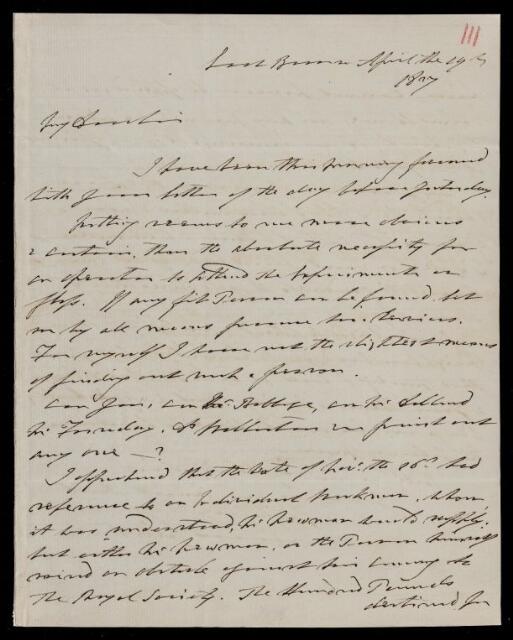 111
East Bourne April the 19th
1827
My Dear Sir
I have been this morning favoured
with your letter of the day before yesterday.
Nothing seems to me more obvious
& certain, than the absolute necessity for
an operator to attend the experiments on
glass. If any fit Person can be found, let
us by all means procure his services.
For myself I have not the slightest means
of finding out such a person.
Can you, can
Mr Faraday, Dr Wollaston point out
any one —?
I apprehend that the vote of Novr. the 16th had
reference to an Individual workman, whom
it was understood, Mr Newman would supply.
but either Mr Newman, or the Person himself
raised an obstacle against his coming to
The Royal Society. The Hundred Pounds
destined for